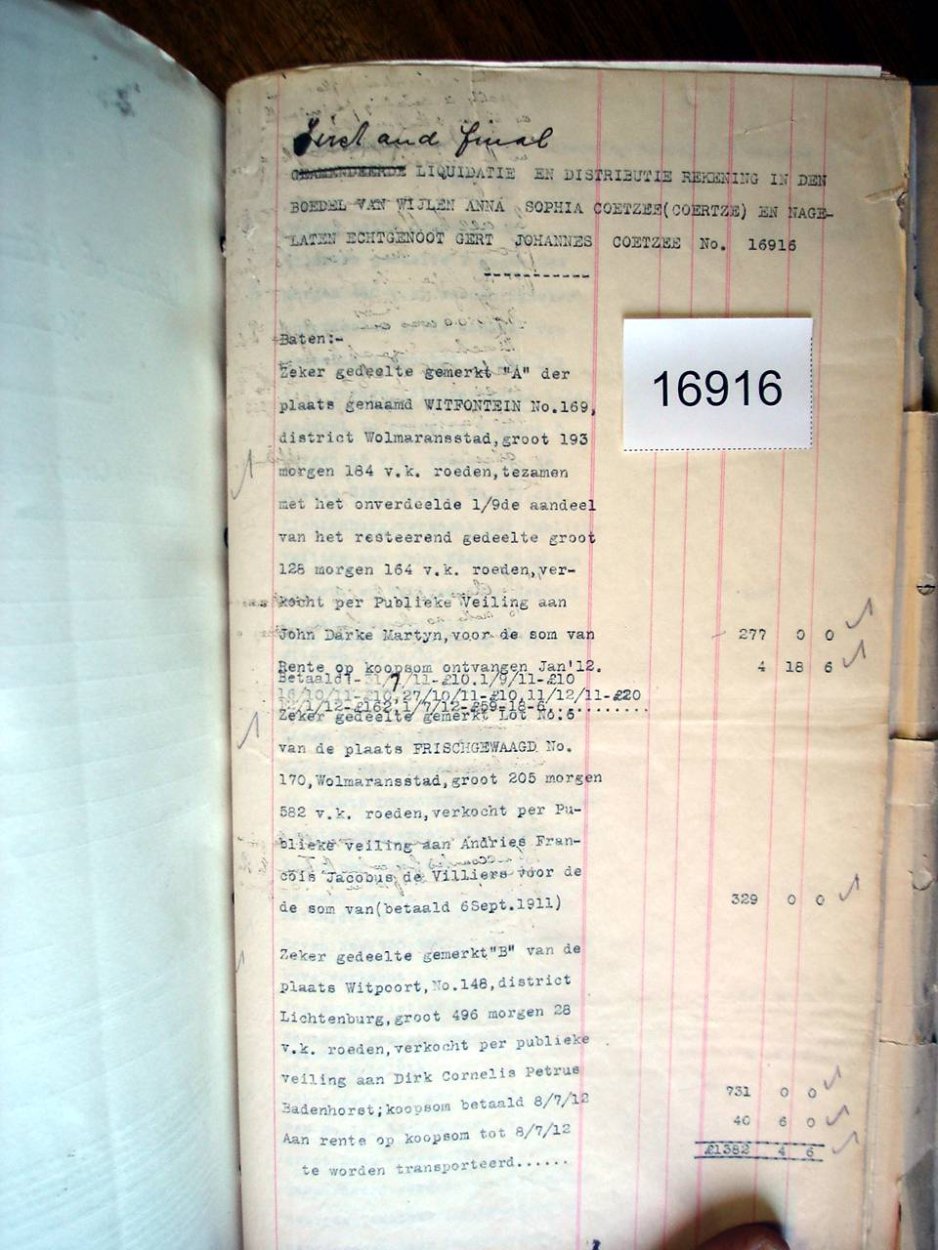 First and final
GEAMENDEERDE LIQUIDATIE EN DISTRIBUTIE REKENING IN DEN
BOEDEL VAN WIJLEN ANNA SOPHIA COETZEE(COERTZE) EN NAGE-
LATEN ECHTGENOOT GERT JOHANNES COETZEE No. 16916
-----------
16916
Baten:-
Zeker gedeelte gemerkt "A" der
plaats genaamd WITFONTEIN No.169,
district Wolmaransstad,groot 193
morgen 184 v.k. roeden,tezamen
met het onverdeelde 1/9de aandeel
van het resteerend gedeelte groot
128 morgen 164 v.k. roeden,ver-
kocht per Publieke Veiling aan
John Darke Martyn,voor de som van 277 0 0
Rente op koopsom ontvangen Jan'12. 4 18 6
Betaald:- 31/7/11-£10.1/9/11-£10
16/10/11-£10,27/10/11-£10,11/12/11-£20
/1/12-£162,1/7/12-£59-18-6,.........
Zeker gedeelte gemerkt Lot No:6
van de plaats FRISCHGEWAAGD No.
170,Wolmaransstad,groot 205 morgen
582 v.k. roeden,verkocht per Pu-
blieke veiling aan Andries Fran-
cois Jacobus de Villiers voor de
de som van(betaald 6Sept.1911) 329 0 0
Zeker gedeelte gemerkt"B" van de
plaats Witpoort,No.148,district
Lichtenburg,groot 496 morgen 28
v.k. roeden,verkocht per publieke
veiling aan Dirk Cornelis Petrus
Badenhorst;koopsom betaald 8/7/12 731 0 0
Aan rente op koopsom tot 8/7/12 40 6 0
te worden transporteerd...... £1382 4 6